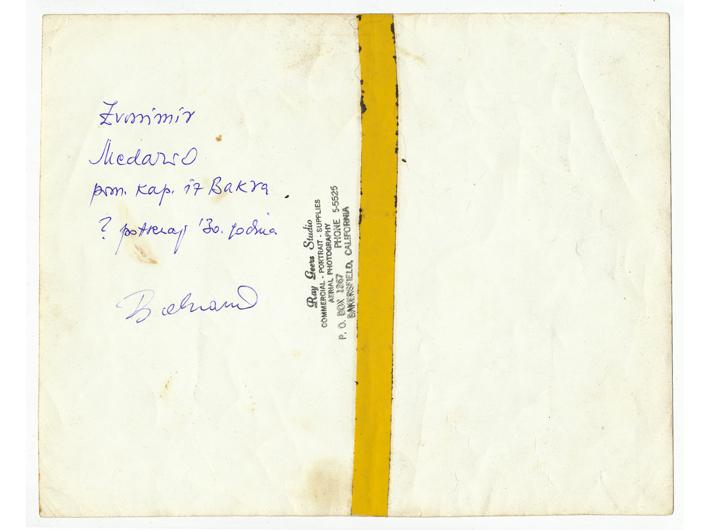 Zvonimir
Medarić
pom. kap. iz Bakra
? potkraj '30. godina
Ray Geers Studio
COMMERCIAL - PORTRAIT - SUPPLIES
AERIAL PHOTOGRAPHY
P. O. BOX 1267 PHONE 5-5525
BAKERSFIELD, CALIFORNIA